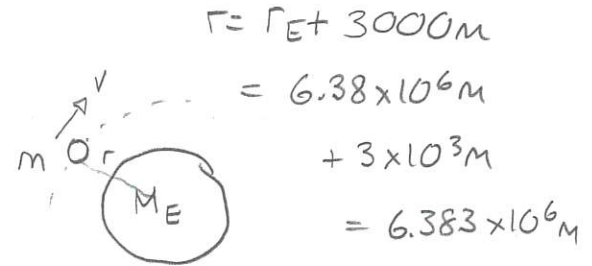 r = r_E + 3000m
= 6.38 x 10^6 m
+ 3 x 10^3 m
= 6.383 x 10^6 m
v
m
r
M_E